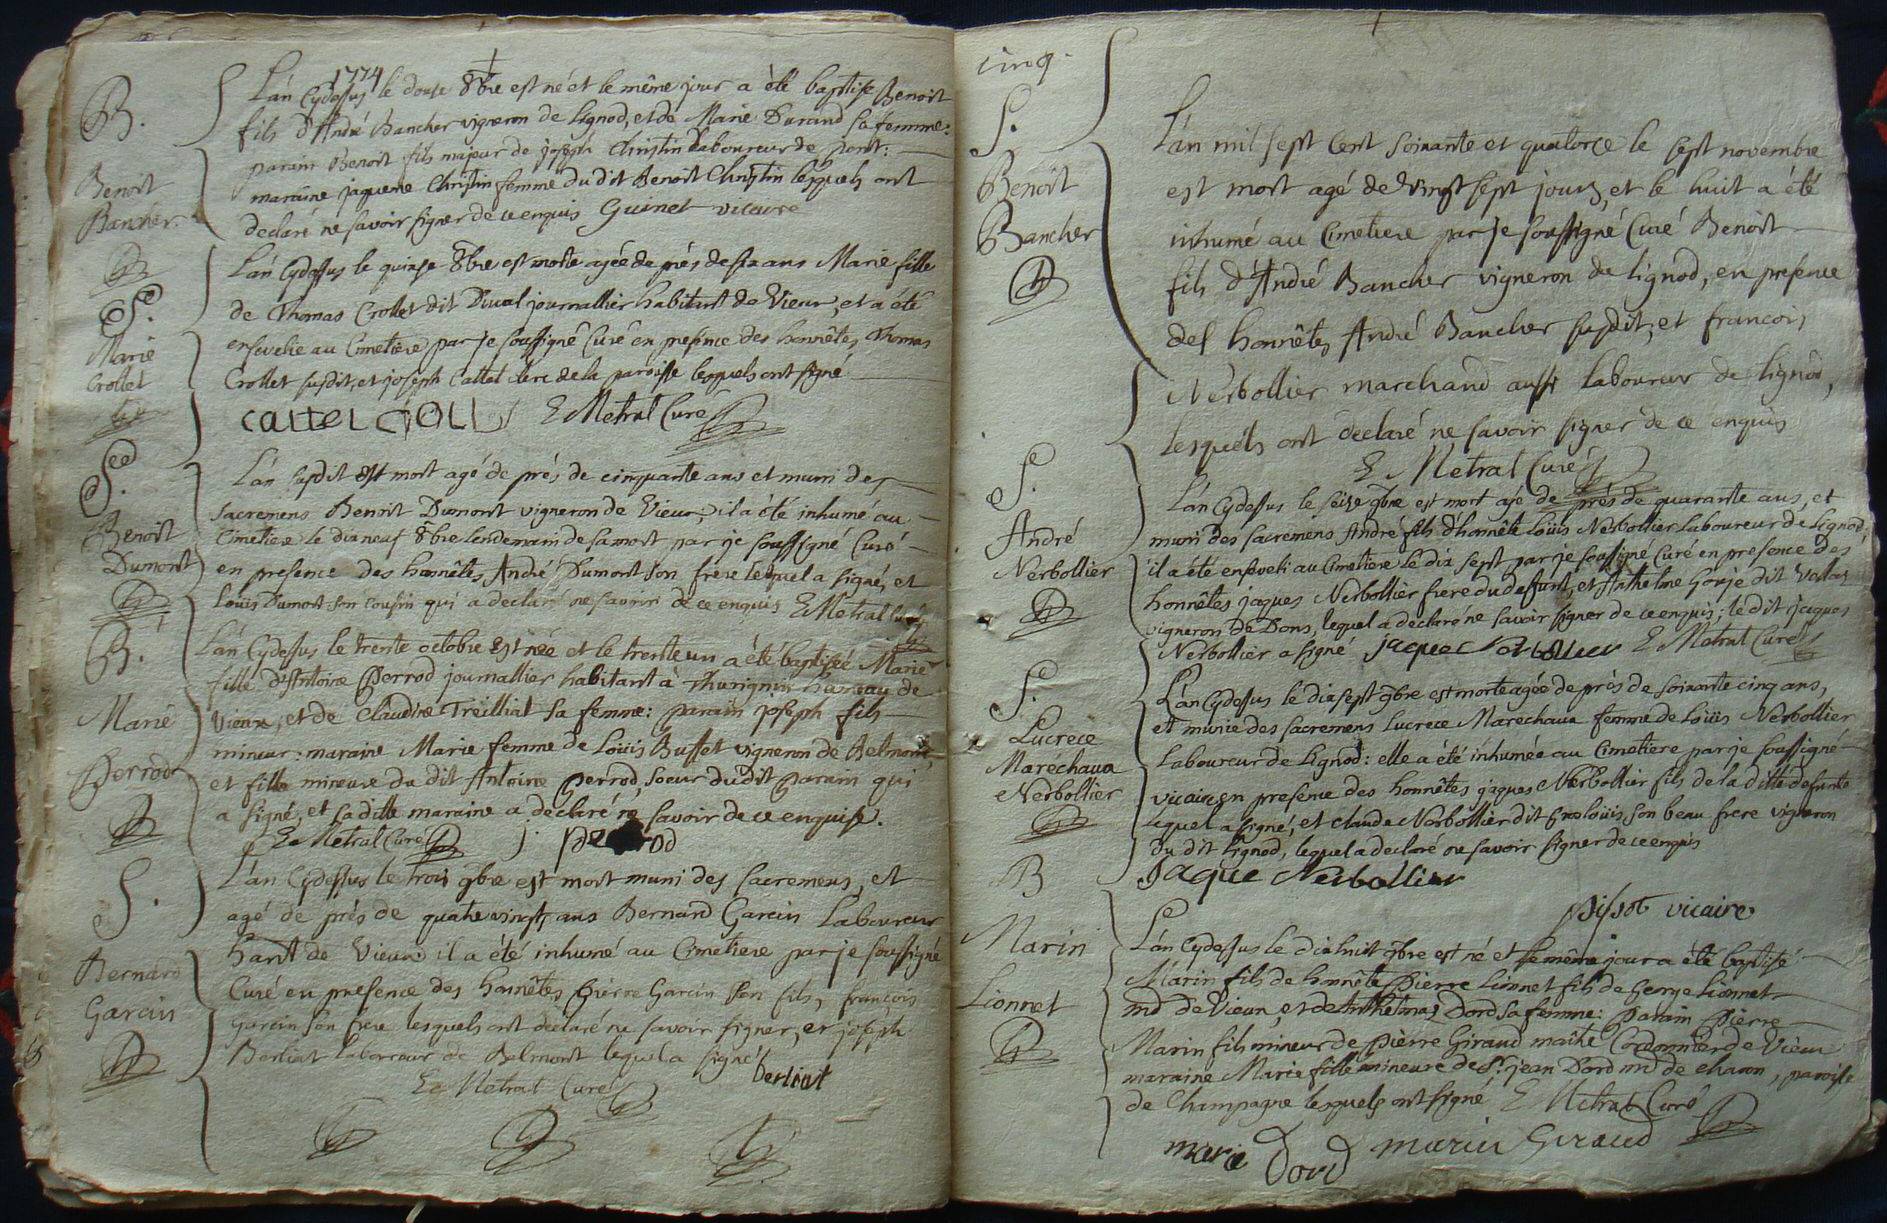 1774
B.
Benoit
Bancher.
L'an Cydessus le douse 8bre est né et le même jour a èté baptise Benoit
fils d'André Bancher vigneron de Lignod, et de Marie Durand sa femme:
parain Benoit fils majeur de joseph Christin Laboureur de pont:
maraine jaquene Christin femme du dit Benoit Christin lesquels ont
declaré ne savoir signer de ce enquis Guinet vicaire
S.
Marie
Crollet
L'an Cydessus le quinse 8bre est morte agée de près de six ans Marie fille
de Thomas Crollet dit Duval journallier habitant de Vieux, et a été
ensevelie au Cimetiere par je soussigné Curé en presence des honnêtes Thomas
Crollet susdit, et joseph Cattel clerc de la paroisse lesquels ont signé
cattel CROLLET E Metral Curé
S.
Benoit
Dumont
L'an susdit est mort agé de près de cinquante ans et muni des
sacremens Benoit Dumont vigneron de Vieux, il a été inhumé au
Cimetiere le dix neuf 8bre lendemain de sa mort par je soussigné Curé
en presence des honnêtes André Dumont son frere lequel a signé, et
Louis Dumont son cousin qui a declaré ne savoir de ce enquis E Metral Curé
B.
Marie
Perrod
L'an Cydessus le trente octobre est née et le trente un a été baptisée Marie
fille d'Antoine Perrod journallier habitant à Thurignin hameau de
Vieux, et de Claudine Treilliat sa femme: parain joseph fils
mineur: maraine Marie femme de Loüis Buffet vigneron de Belmont,
et fille mineure du dit Antoine Perrod, soeur du dit Parain qui
a signé, et sa ditte maraine a declaré ne savoir de ce enquise.
E Metral Curé j. perrod
S.
Bernard
Garcin
L'an Cydessus le trois 9bre est mort muni des sacremens, et
agé de près de quatre vingt ans Bernard Garcin Laboureur
hant de Vieux il a été inhumé au Cimetiere par je soussigné
Curé en presence des honnêtes Pierre Garcin son fils, françois
Garcin son frere lesquels ont déclaré ne savoir signer, et joseph
Berliat laboureur de Belmont lequel a signé
E Metral Curé berliat
cinq.
S.
Benoit
Bancher
L'an mil sept cent soixante et quatorze le sept novembre
est mort agé de vingt sept jours, et le huit a été
inhumé au Cimetiere par je soussigné Curé Benoit
fils d'André Bancher vigneron de Lignod, en presence
des honnêtes André Bancher susdit, et francois
Nerbollier marchand aussi laboureur de Lignod,
lesquels ont declaré ne savoir signer de ce enquis
E Metral Curé
S.
André
Nerbollier
L'an Cydessus le seize 9bre est mort agé de près de quarante ans, et
muni des sacremens André fils d'honnête Loüis Nerbollier laboureur de Lignod,
il a été enseveli au Cimetiere le dix sept par je soussigné Curé en presence des
honnêtes jaques Nerbollier frere du deffunt, et Anthelme Gorje dit
vigneron de Dons, lequel a declaré ne savoir signer de ce enquis; le dit jaques
Nerbollier a signé jaque Nerbollier E Metral Curé
S.
Lucrece
Marechaux
Nerbollier
L'an Cydessus le dix sept 9bre est morte agée de près de soixante cinq ans,
et munie des sacremens Lucrece Marechaux femme de Loüis Nerbollier
Laboureur de Lignod: elle a été inhumée au Cimetiere par je soussigné
vicaire en presence des honnêtes jaques Nerbollier fils de la ditte defunte
lequel a signé, et Claude Nerbollier dit son beau frere vigneron
du dit Lignod, lequel a declaré ne savoir signer de ce enquis
Jaque Nerbollier
vicaire
B
Marin
Lionnet
L'an Cydessus le dixhuit 9bre est né et le même jour a été baptisé
Marin fils de honnête Pierre Lionnet fils de George Lionnet
md de Vieux, et de Anthelmaz Dord sa femme: Parain Pierre
Marin fils mineur de Pierre Giraud maître Cordonnier de Vieux
maraine Marie fille mineure de Sr. jean Dord md de charon, paroisse
de Champagne lesquels ont signé E Metral Curé
marie Dord marin Giraud